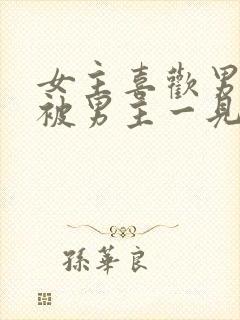 女主喜歡男
被男主一見
孫華良